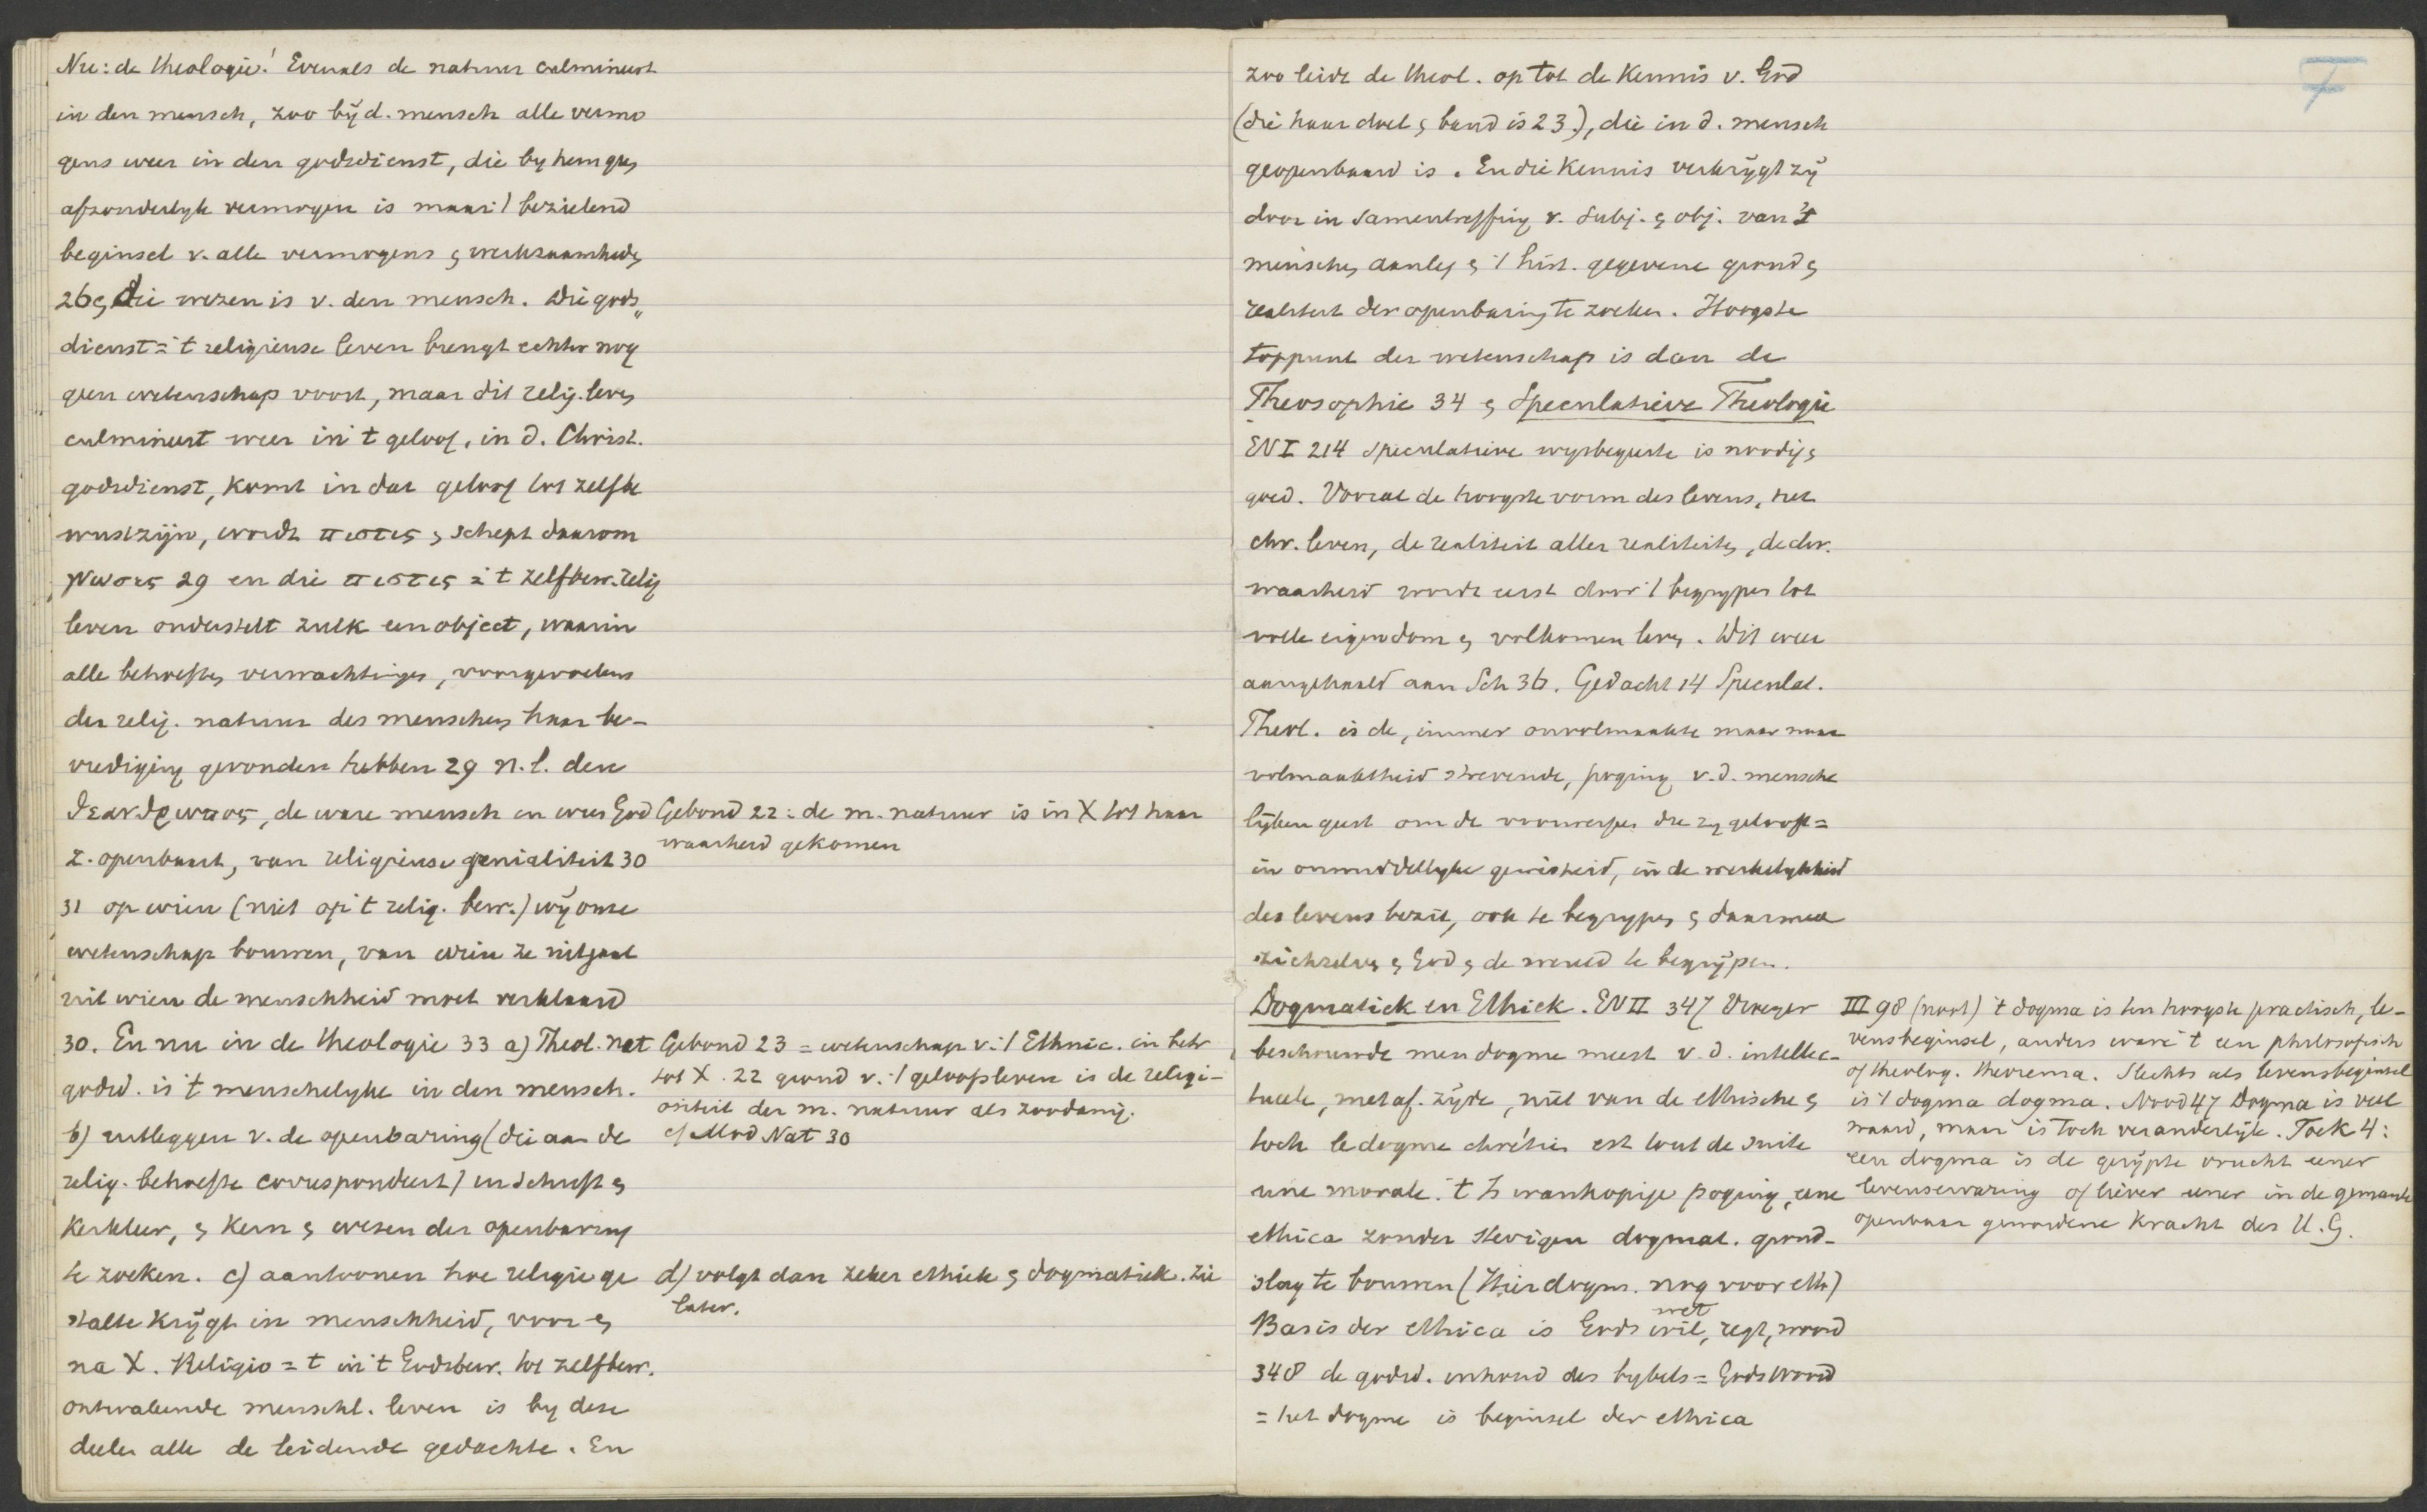 Nu: de theologie! Evenals de natuur culmineert
in den mensch, zoo bij d. mensch alle vermo
gens weer in den godsdienst, die by hem geen
afzonderlyk vermogen is maar 't bezielend
beginsel v. alle vermogens en werkzaamheden
26 en die wezen is v. den mensch. Die gods„
dienst = 't religieuse leven brengt echter nog
geen wetenschap voort, maar dit relig. leven
culmineert weer in 't geloof, in d. Christ.
godsdienst, komt in dat geloof tot zelfbe
wustzijn, wordt πιστις en schept daarom
γνωσις 29 en die πιστις = 't zelfbew. relig
leven onderstelt zulk een object, waarin
alle behoeften, verwachtingen, voorgevoelens
der relig. natuur des menschen haar be-
vrediging gevonden hebben 29 n.l. den
θεανθρωπος, de ware mensch in wien God
z. openbaart, van religieuse genialiteit 30
31 op wien (niet op 't relig. bew.) wij onze
wetenschap bouwen, van wien ze uitgaat
uit wien de menschheid moet verklaard
30. En nu in de theologie 33 a) Theol. nat
godsd. is 't menschelyke in den mensch.
b) uitleggen v. de openbaring (die aan de
relig. behoefte correspondeert) in Schrift en
Kerkleer, en Kern en wezen der openbaring
te zoeken. c) aantoonen hoe religie ge
stalte krijgt in menschheid, voor en
na X. Religio = 't in 't Godsbew. tot zelfbew.
ontwakende menschl. leven is by deze
deelen alle de leidende gedachte. En
Gebond 22: de m. natuur is in X tot haar
waarheid gekomen
Gebond 23 = wetenschap v. 't Ethnic. in betr
tot X. 22 grond v. 't geloofsleven is de religi-
ositeit der m. natuur als zoodanig.
cf Mod Nat 30
d) volgt dan zeker ethiek en dogmatiek. Zie
later.
7
zoo leidt de theol. op tot de Kennis v. God
(die haar doel en band is 23), die in d. mensch
geopenbaard is. En die Kennis verkrijgt zij
door in samentreffing v. subj. en obj. van 't
menschen aanleg en 't hist. gegevene grond en
realiteit der openbaring te zoeken. Hoogste
toppunt der wetenschap is dan de
Theosophie 34 en Speculatieve Theologie
EN I 214 Speculatieve wysbegeerte is noodig en
goed. Vooral de hoogste vorm des levens, het
chr. leven, de realiteit aller realiteiten, de chr.
waarheid wordt eerst door 't begrypen tot
volle eigendom en volkomen leven. Dit weer
aangehaald aan Sch 36. Gedacht 14 Speculat.
Theol. is de, immer onvolmaakte maar naar
volmaaktheid strevende, poging v. d. mensche
lijken geest om de voorwerpen die zy gelooft =
in onmiddellyke gewisheid, in de werkelykheid
des levens bezit, ook te begrypen en daarmee
zichzelven en God en de wereld te begrijpen.
Dogmatiek en Ethiek. EN II 347 Vroeger
beschouwde men dogme meest v. d. intellec-
tueele, metaf. zijde, niet van de ethische en
toch le dogme chrétien est tout de suite
une morale. 't Is wanhopige poging, eene
ethica zonder stevigen dogmat. grond-
slag te bouwen (Hier dogm. nog voor eth)
Basis der ethica is Gods wil, wet regt, woord
348 de godsd. inhoud des bybels = Gods Woord
= het dogme is beginsel der ethica
III 98 (noot) 't dogma is ten hoogste practisch, le-
vensbeginsel, anders ware 't een philosofisch
of theolog. theorema. Slechts als levensbeginsel
is 't dogma dogma. Nood 47 Dogma is veel
waard, maar is toch veranderlijk. Toek 4:
een dogma is de gerijpte vrucht eener
levenservaring of liever eener in de gemeente
openbaar gewordene Kracht des H. G.